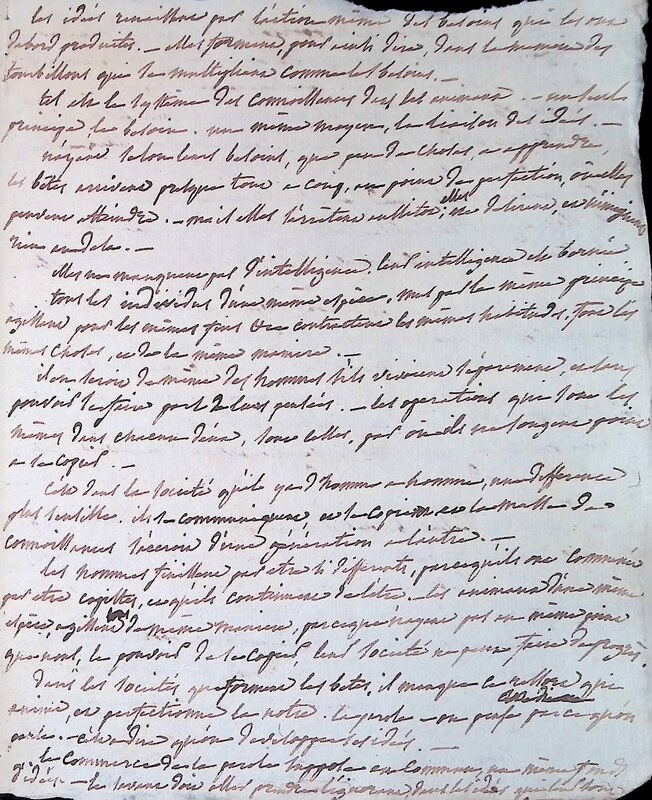 les idées renaissent par l'action même des besoins qui les ont
d'abord produites. — elles forment, pour ainsi dire, dans la memoire des
tourbillons qui se multiplient comme les besoins. —
tel est le systême des connoissances dans les animaux. — un seul
principe le besoin. un même moyen, la liaison des idées. —
n'ayant selon leurs besoins, que peu de choses, a apprendre,
les bêtes arrivent presque tout a coup, au point de perfection, où elles
peuvent atteindre. — mais elles s'arretent aussitot, elles ne desirent, et n'imaginent
rien audela. —
elles ne manquent pas d'intelligence. leur intelligence est bornée
tous les individus d'une même espèce, mus par le même principe
agissent pour les mêmes fins et contractent les mêmes habitudes, font les
mêmes choses, et de la même maniere. —
il en seroit de même des hommes s'ils vivoient séparement, et sans
pouvoir se faire part de leurs pensées. — les operations qui sont les
mêmes dans chacun d'eux, sont celles, par où ils ne songent point
a se copier. —
C'est dans la société qu'il y a d'homme a homme, une difference
plus sensible. ils se communiquent, et se copient et la masse de
connoissances s'accroit d'une génération a l'autre. —
les hommes finissent par etre si differents, parcequ'ils ont commencé
par etre copistes, et qu'ils continuent de l'être. — les animaux d'une même
espèce agissent de même maniere, parceque n'ayant pas au même point
que nous, le pouvoir de se copier, leur société ne peut faire de progrès.
dans les societés que forment les betes, il manque ce ressort qui
anime, et perfectionne la notre. la parole — on pense parce qu'on
parle. — c'est a dire qu'on developpe ses idées. —
le commerce de la parole suppose en commun, un même fond
d'idées —